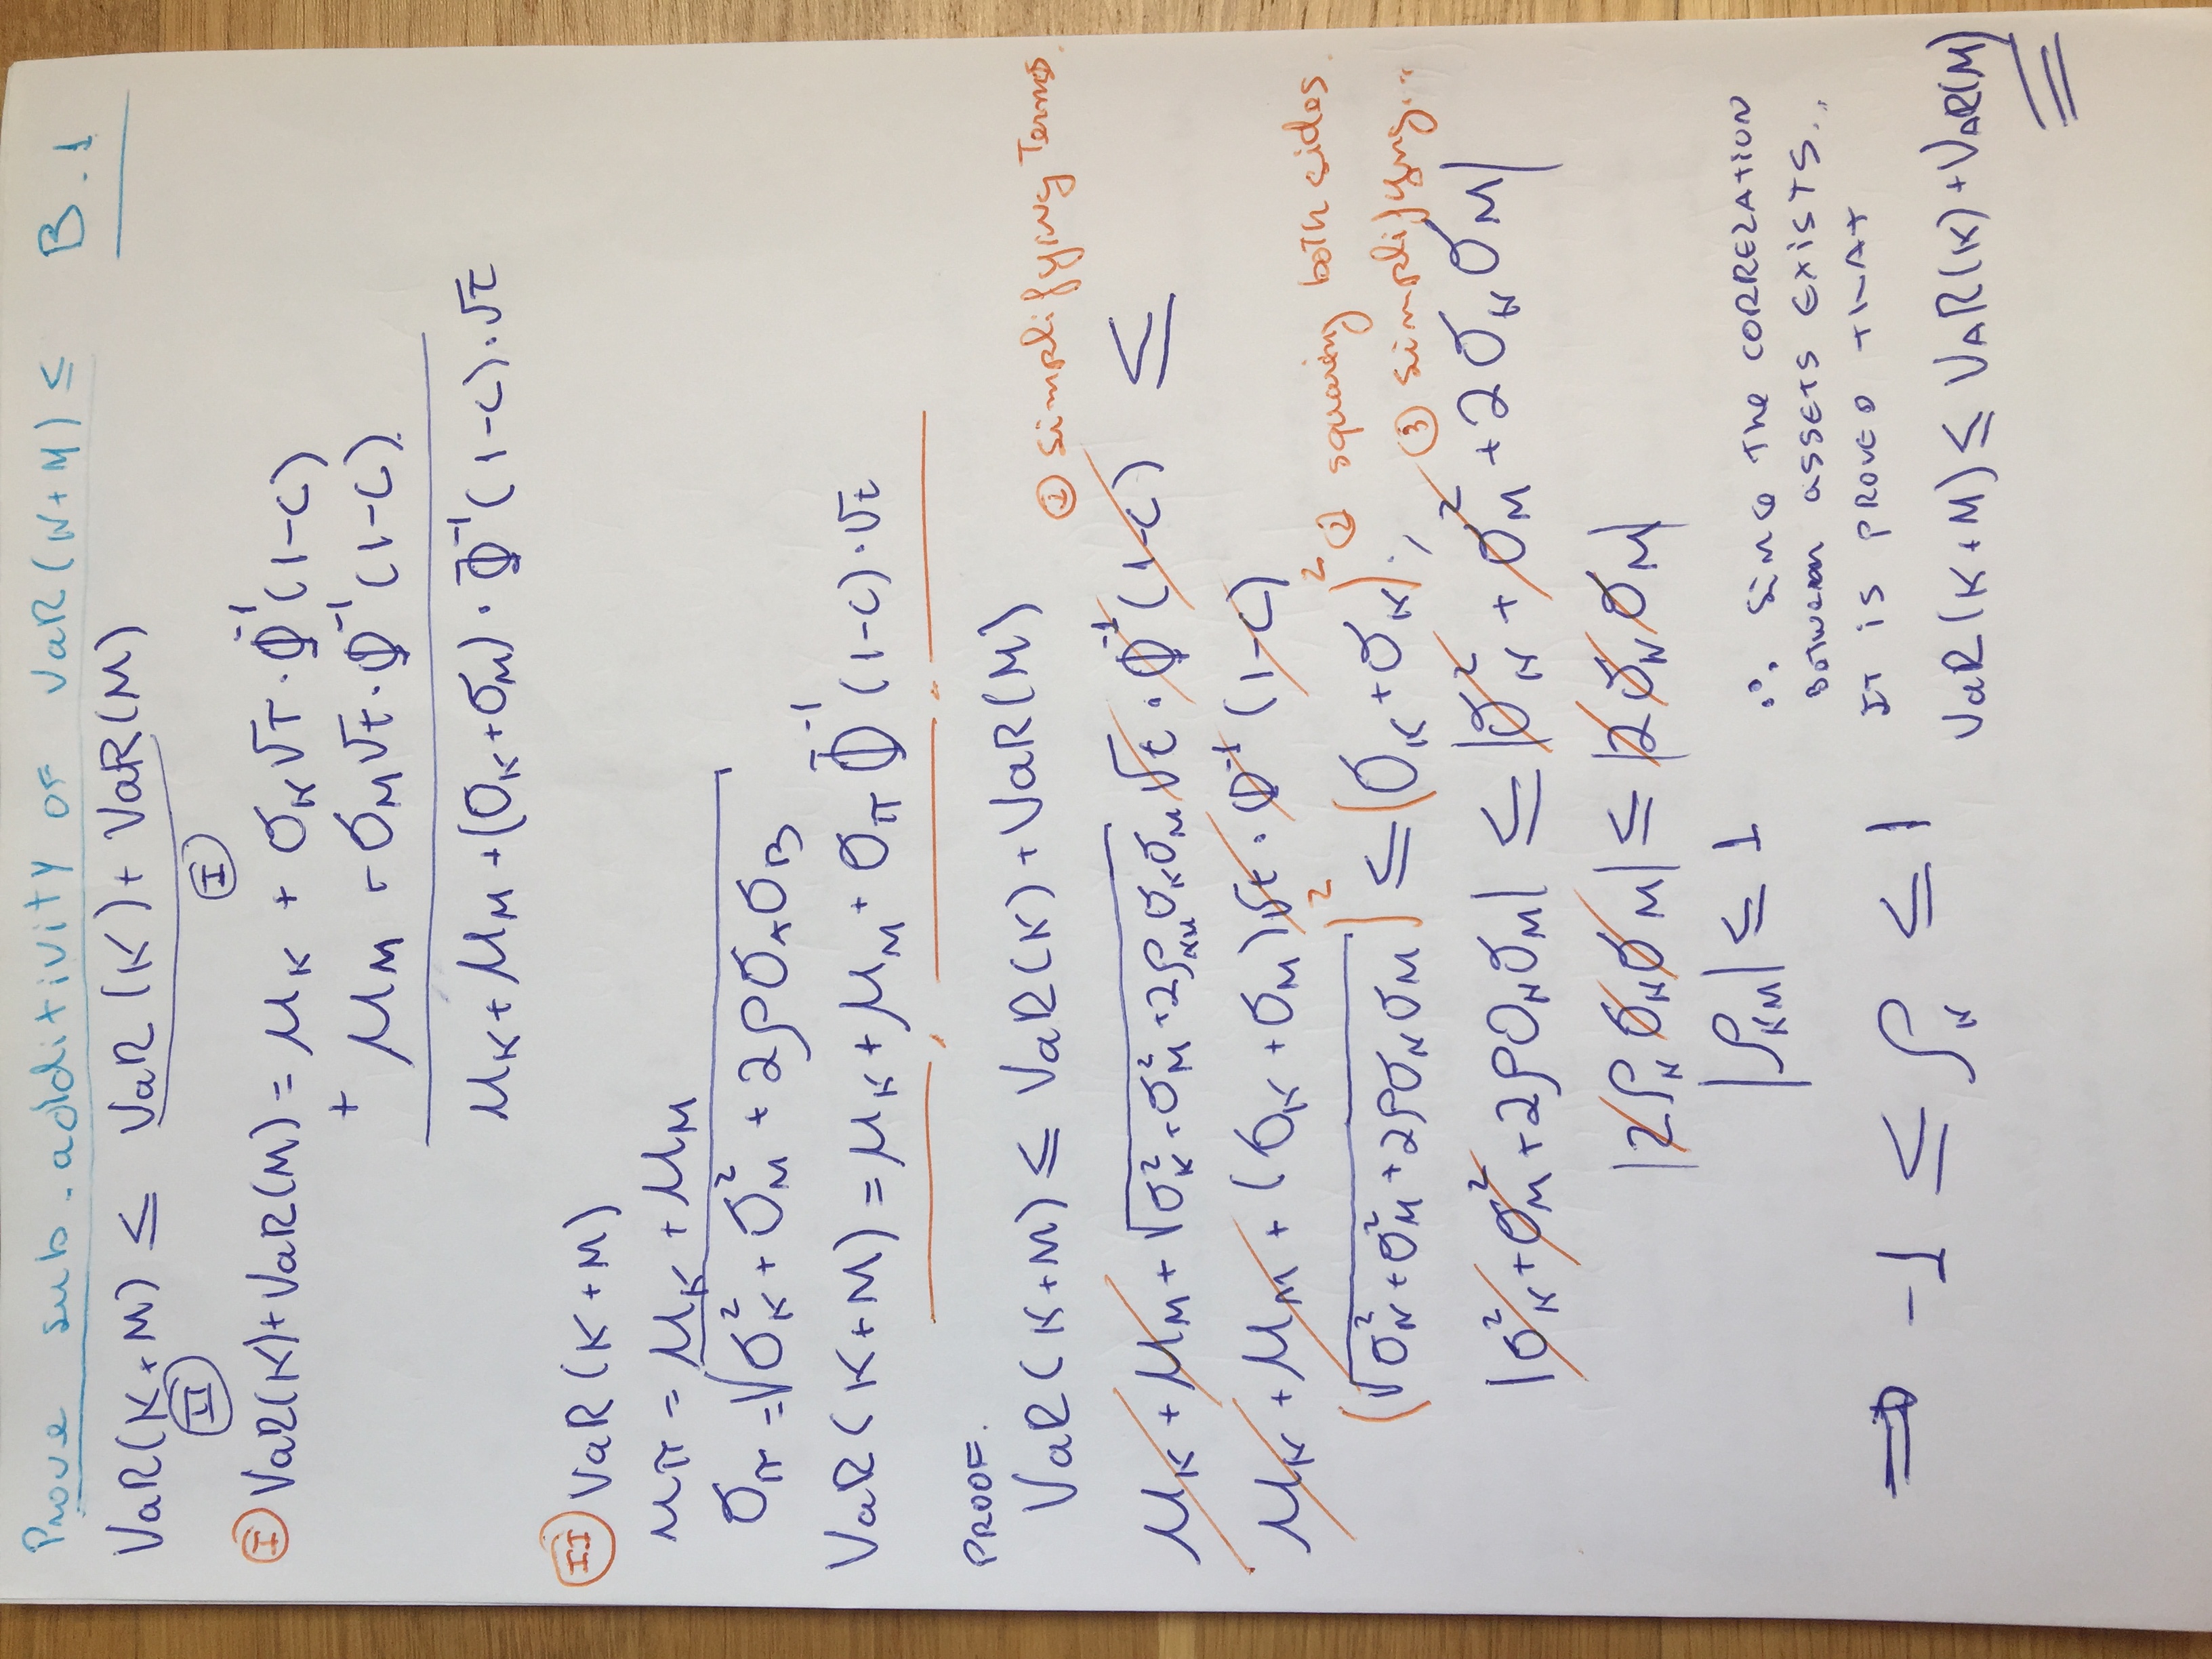 Prove sub-additivity of VaR(K+M) ≤
B.1
VaR(K+M) ≤ VaR(K) + VaR(M)
II I
I VaR(K)+VaR(M) = μ_K + σ_K √T · Φ⁻¹(1-C)
+ μ_M + σ_M √t · Φ⁻¹(1-C)
μ_K + μ_M + (σ_K + σ_M) · Φ⁻¹(1-C) · √t
II VaR(K+M)
μ_π = μ_K + μ_M
σ_π = √(σ²_K + σ²_M + 2ρσ_Aσ_B)
VaR(K+M) = μ_K + μ_M + σ_π Φ⁻¹(1-C) · √t
PROOF.
VaR(K+M) ≤ VaR(K) + VaR(M)
① simplifying Terms.
μ_K + μ_M + √(σ²_K + σ²_M + 2ρ_KM σ_K σ_M) √t · Φ⁻¹(1-C) ≤
μ_K + μ_M + (σ_K + σ_M) √t · Φ⁻¹(1-C)
(√(σ²_K + σ²_M + 2ρσ_Kσ_M))² ≤ (σ_K + σ_K)². ② squaring both sides.
③ simplifyng...
|σ²_K + σ²_M + 2ρσ_Kσ_M| ≤ |σ²_K + σ²_M + 2σ_Kσ_M|
|2ρ_K σ_K σ_M| ≤ |2σ_Kσ_M|
|ρ_KM| ≤ 1
∴ Since The CORRELATION
Between ASSETS EXISTS..
IT is PROVED THAT
⇒ -1 ≤ ρ_K ≤ 1
VaR(K+M) ≤ VAR(K) + VAR(M)